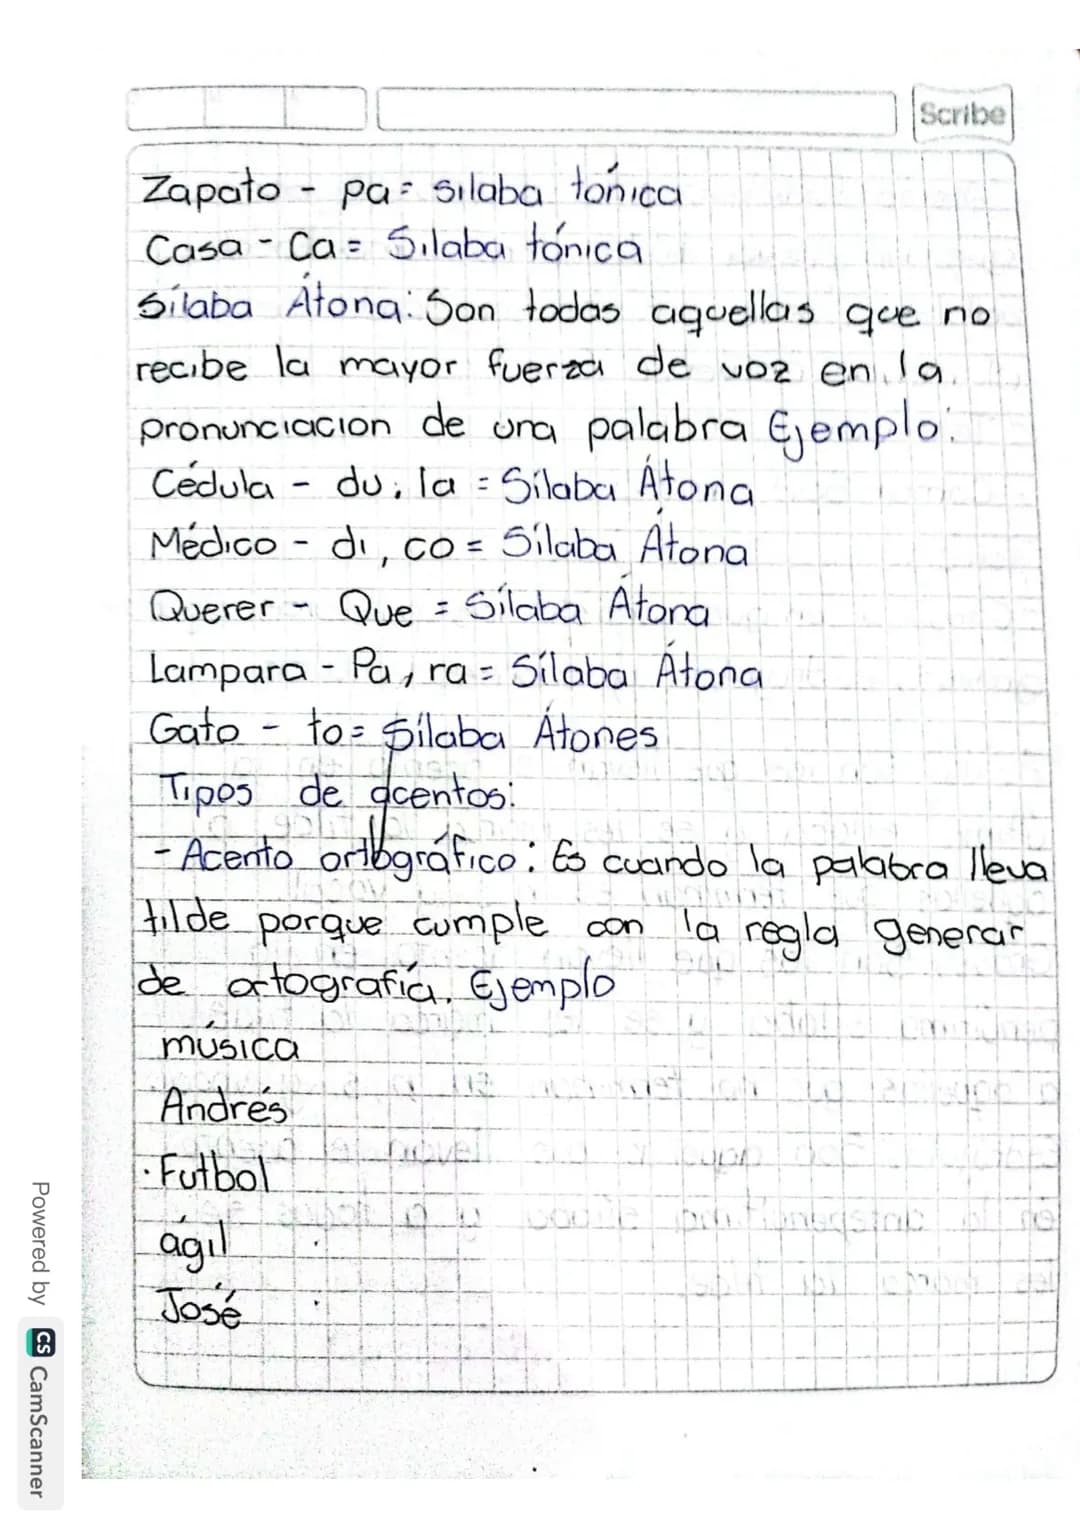 Scribe
Zapato - pa = sılaba tónıca
Casa - Ca = Sılaba tónıca
Sílaba Átona: Son todas aquellas que no
recıbe la mayor fuerza de voz en la
pronuncıacıon de una palabra Ejemplo:
Cédula - du, la = Sílaba Átona
Médıco - dı, co = Sílaba Átona
Querer - Que = Sílaba Átona
Lampara - Pa, ra = Sílaba Átona
Gato - to = Sílaba Átones
Tıpos de acentos:
- Acento ortográfıco: Es cuando la palabra lleva
tılde porque cumple con la regla generar
de ortografía. Ejemplo
músıca
Andrés
· Futbol
ágıl
José
Powered by CS CamScanner